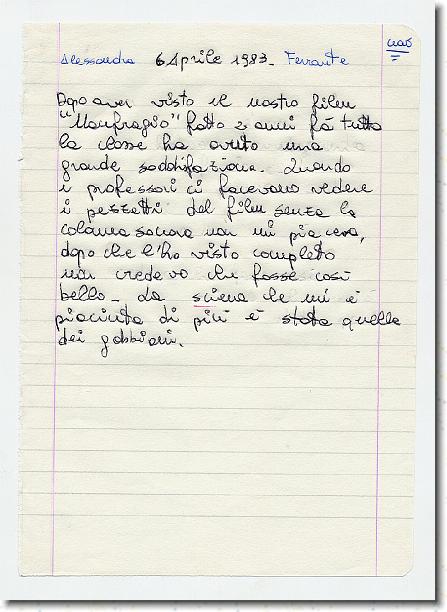 Alessandra 6 Aprile 1983- Ferrante
Dopo aver visto il nostro film
"Naufragio" fatto 2 anni fà tutta
la classe ha avuto una
grande soddisfazione. Quando
i professori ci facevano vedere
i pezzetti del film senza la
colonna sonora non mi piaceva,
dopo che l'ho visto completo
non credevo che fosse così
bello- La sciena che mi è
piaciuta di più è stata quella
dei gabbiani.